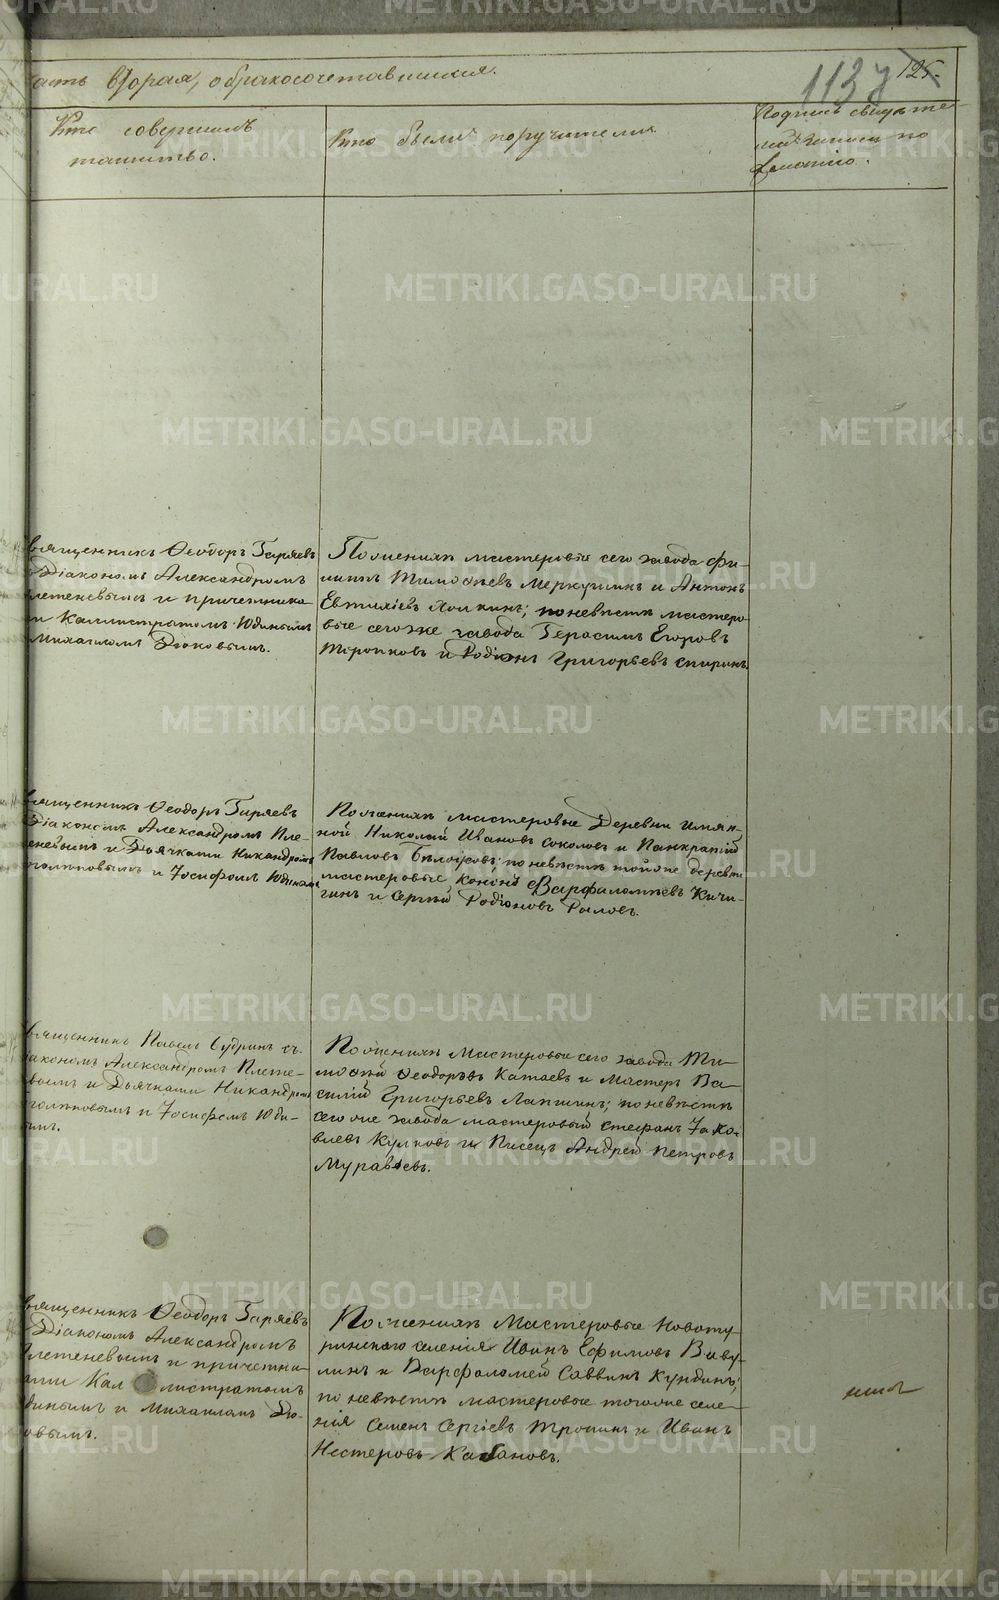 асть вторая, о бракосочетавшихся.
113
125.
Кто совершилъ
таинство.
Кто были поручители.
Подпись свидѣте
записи по
желанію.
вященникъ Ѳеодоръ Гиряевъ
Діакономъ Александромъ
летеневымъ и причетника
и Каллистратомъ Юдинымъ
Михаиломъ Дюковымъ.
По женихѣ мастеровые сего завода Фи-
липпъ Тимоѳеевъ Меркушинъ и Антонъ
Евтихіевъ Холкинъ; по невѣстѣ мастеро
вые сегоже завода Герасимъ Егоровъ
и Родіонъ Григорьевъ Спиринъ.
вященникъ Ѳеодоръ Гиряевъ
Діакономъ Александромъ Пле
еневымъ и Дьячками Никандромъ
и Іосифомъ Юдинымъ
По женихѣ мастеровые Деревни Имян-
ной Николай Ивановъ Соколовъ и Панкратій
Павловъ Бѣлоусовъ; по невѣстѣ тойже деревни
мастеровые Кононъ Варфаломѣевъ Кичи-
гинъ и Сергѣй Родіоновъ Рыловъ.
вященникъ Павелъ Сударинъ съ
іакономъ Александромъ Плете-
вымъ и Дьячками Никандромъ
и Іосифомъ Юди-
ымъ.
По женихѣ Мастеровые сего завода Ти-
моѳей Ѳеодоровъ Катаевъ и Мастеръ Ва-
силій Григорьевъ Лапшинъ; по невѣстѣ
сегоже завода мастеровый Стефанъ Іако-
влевъ Куликовъ и Писецъ Андрей Петровъ
Муравьевъ.
вященникъ Ѳеодоръ Гиряевъ
Діакономъ Александромъ
летеневымъ и причетни-
ами Каллистратомъ
динымъ и Михаиломъ Дю-
овымъ.
По женихѣ Мастеровые Новоту-
ринскаго селенія Иванъ Ефимовъ Ваву-
линъ и Варфаломей Саввинъ Кундинъ;
по невѣстѣ мастеровые тогоже селе-
нія Семенъ Сергѣевъ Тропинъ и Иванъ
Нестеровъ Кабановъ.
METRIKI.GASO-URAL.RU